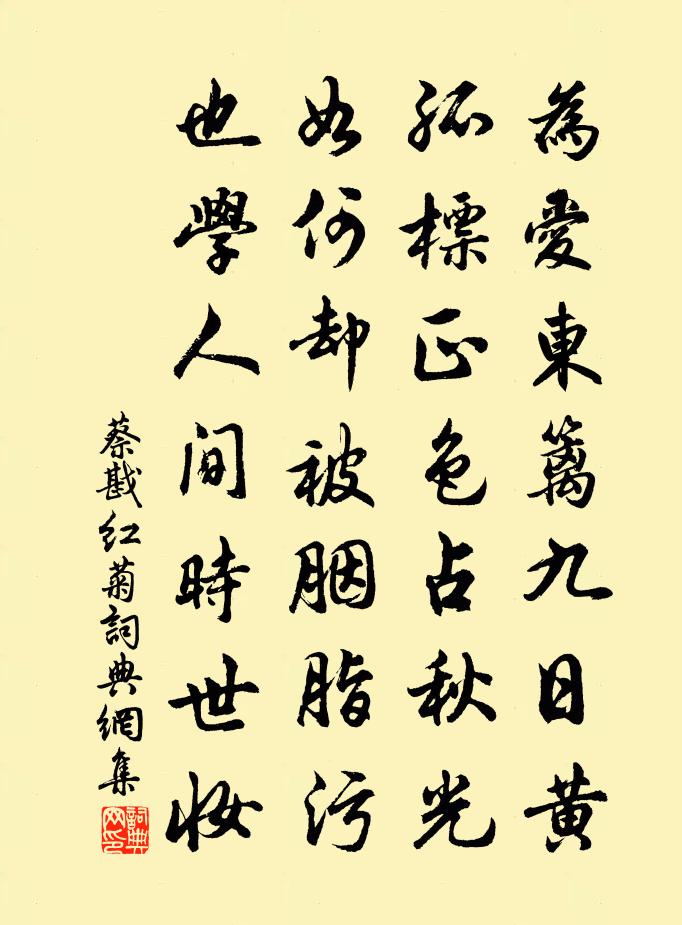 為愛東籬九日黄
孤標正色占秋光
如何却被胭脂污
也學人间時世妆
蔡戡红菊詞典網集
詞典网印